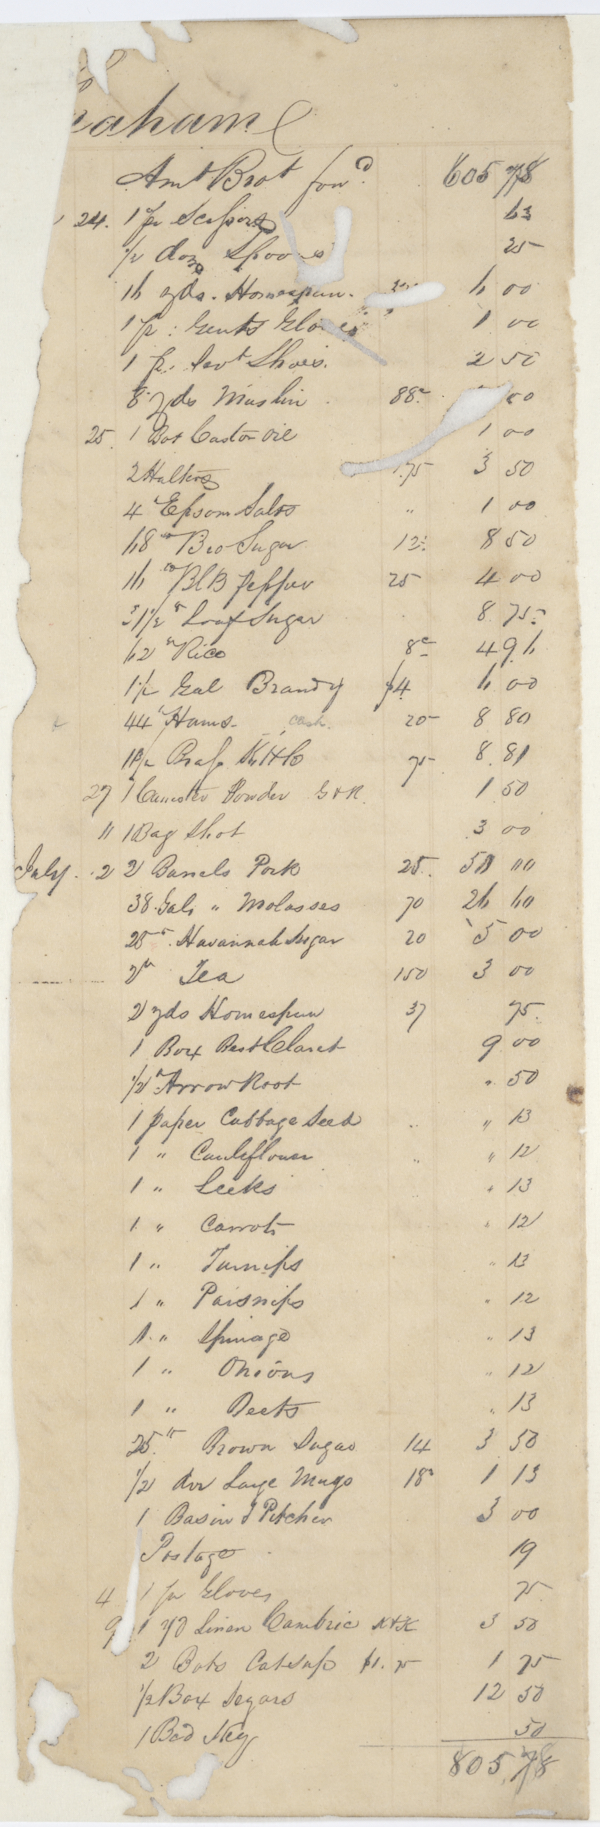 aham
Amt Brot forwd 605 78
24. 1 pr Scissors 63
1/2 doz Spoons 25
16 yds. Homespun. 6 00
1 pr: Gents Gloves 1 00
1 pr. Servt Shoes. 2 50
8 yds Muslin 88c 00
25. 1 Bot Castor oil 1 00
2 Halters 1.75 3 50
4 " Epsom Salts " 1 00
68 " Bro Sugar 12½ 8 50
16 " Bl B pepper 25 4 00
31 1/2 " Loaf Sugar 8 75
62 " Rice 8c 4 96
1 1/2 Gal Brandy $4 6 00
44 " Hams 20 8 80
Brass 75 8 81
27 1 Canister Powder 1 50
" 1 Bag Shot 3 00
July 2 2 Barrels Pork 25. 50 00
38 Gals " Molasses 70 26 60
25 " Havannah Sugar 20 5 00
2 " Tea 150 3 00
2 yds Homespun 37 75
1 Box Best Claret 9 00
1/2 " Arrow Root " 50
1 paper Cabbage Seed " 13
1 " Cauleflower " 12
1 " Leeks " 13
1 " Carrots " 12
1 " Turnips " 13
1 " Parsnips " 12
1 " Spinage " 13
1 " Onions " 12
1 " Beets " 13
25 lb Brown Sugar 14 3 50
1/2 doz Large Mugs 18c 1 13
1 Basin & Pitcher 3 00
Postage 19
4 1 pr Gloves 75
9 1 yd Linen Cambric 3 50
2 Bots Catsup $1.75 1 75
1/2 Box Segars 12 50
1 Bed Key 50
805 78